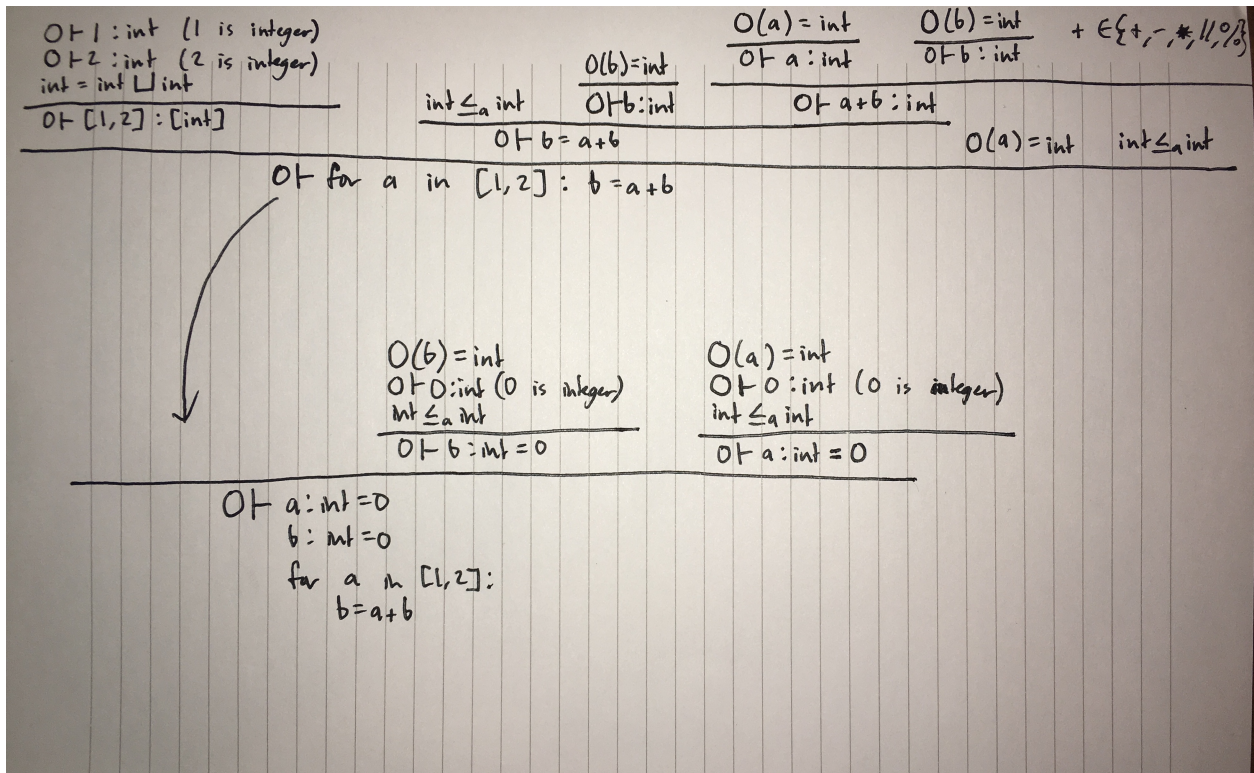 O ⊢ 1 : int (1 is integer)
O ⊢ 2 : int (2 is integer)
int = int ⊔ int
O ⊢ [1,2] : [int]
int ≤ₐ int
O(b)=int
O ⊢ b : int
O(a) = int
O ⊢ a : int
O(b) = int
O ⊢ b : int
+ ∈ {+,-,*,//,%}
O ⊢ a+b : int
O ⊢ b = a+b
O(a) = int int ≤ₐ int
O ⊢ for a in [1,2] : b = a+b
O(b) = int
O ⊢ 0 : int (0 is integer)
int ≤ₐ int
O ⊢ b : int = 0
O(a) = int
O ⊢ 0 : int (0 is integer)
int ≤ₐ int
O ⊢ a : int = 0
O ⊢ a : int = 0
b : int = 0
for a in [1,2] :
b = a+b